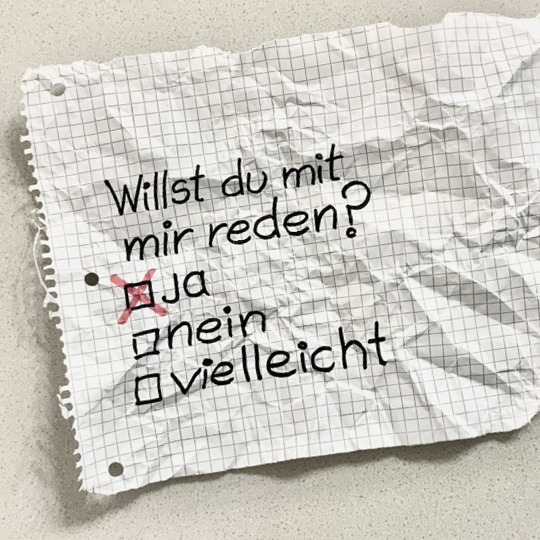 Willst du mit
mir reden?
Ja
nein
vielleicht